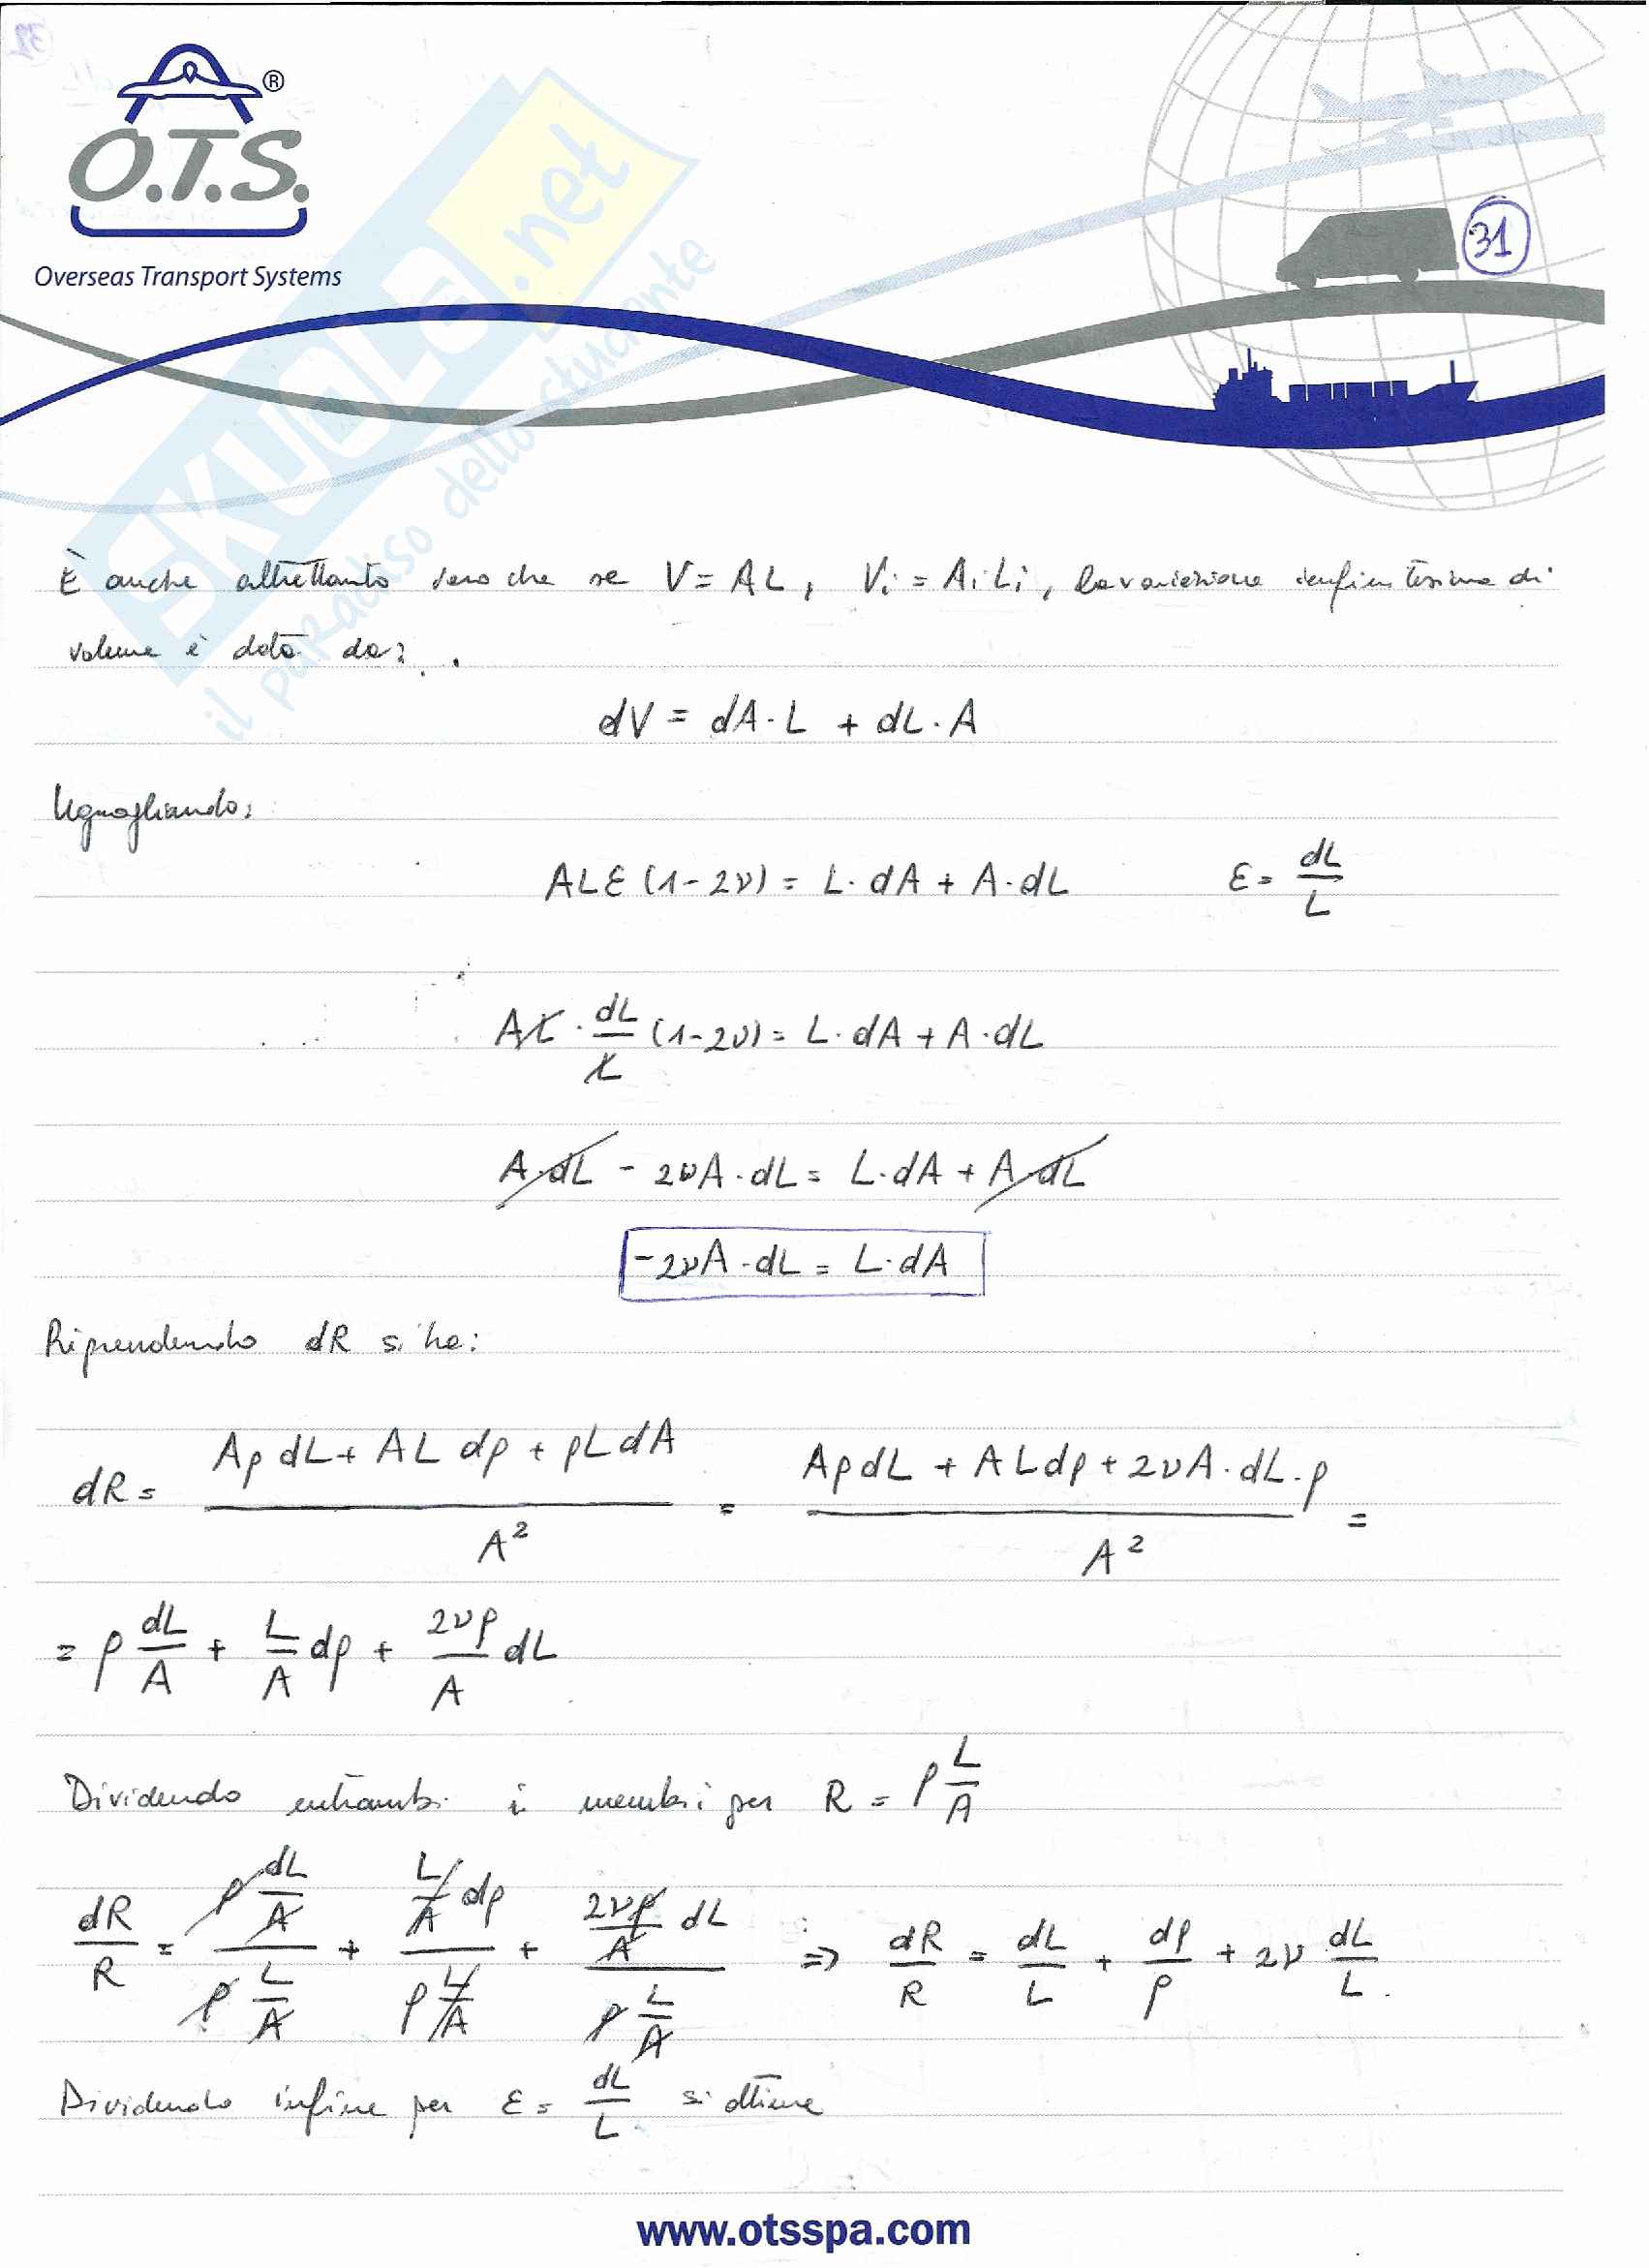 32
®
O.T.S.
Overseas Transport Systems
SKUOLA.net
il paradiso dello studente
31
È anche altrettanto vero che se V = AL, Vi = Ai Li, la variazione infinitesima di
volume è data da:
dV = dA · L + dL · A
Uguagliando:
ALε (1 - 2ν) = L · dA + A · dL    ε = dL/L
AL · dL/L (1 - 2ν) = L · dA + A · dL
A · dL - 2νA · dL = L · dA + A · dL
-2νA · dL = L · dA
Riprendendo dR si ha:
dR = (Aρ dL + AL dρ + ρL dA)/A² = (Aρ dL + AL dρ + 2νA · dL · ρ)/A² =
= ρ dL/A + L/A dρ + 2νρ/A dL
Dividendo entrambi i membri per R = ρ L/A
dR/R = (ρ dL/A)/(ρ L/A) + (L/A dρ)/(ρ L/A) + (2νρ/A dL)/(ρ L/A) => dR/R = dL/L + dρ/ρ + 2ν dL/L.
Dividendo infine per ε = dL/L si ottiene
www.otsspa.com